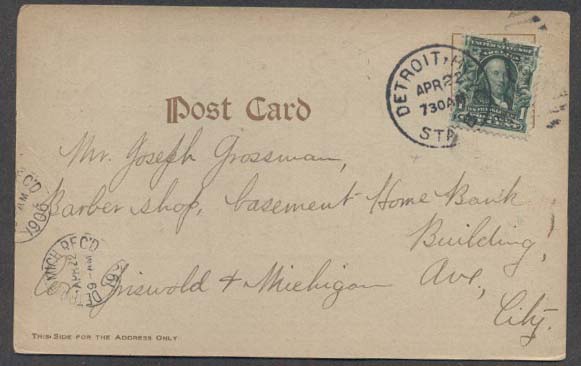 DETROIT, M
APR 22
730 AM
STA
UNITED STATES
Post Card
Mr. Joseph Grossman,
Barber shop, basement Home Bank
Building,
Griswold & Michigan
Ave,
City.
REC'D
AM
1906
MICH. REC'D
APR 22
9-AM
DET
190
THIS SIDE FOR THE ADDRESS ONLY